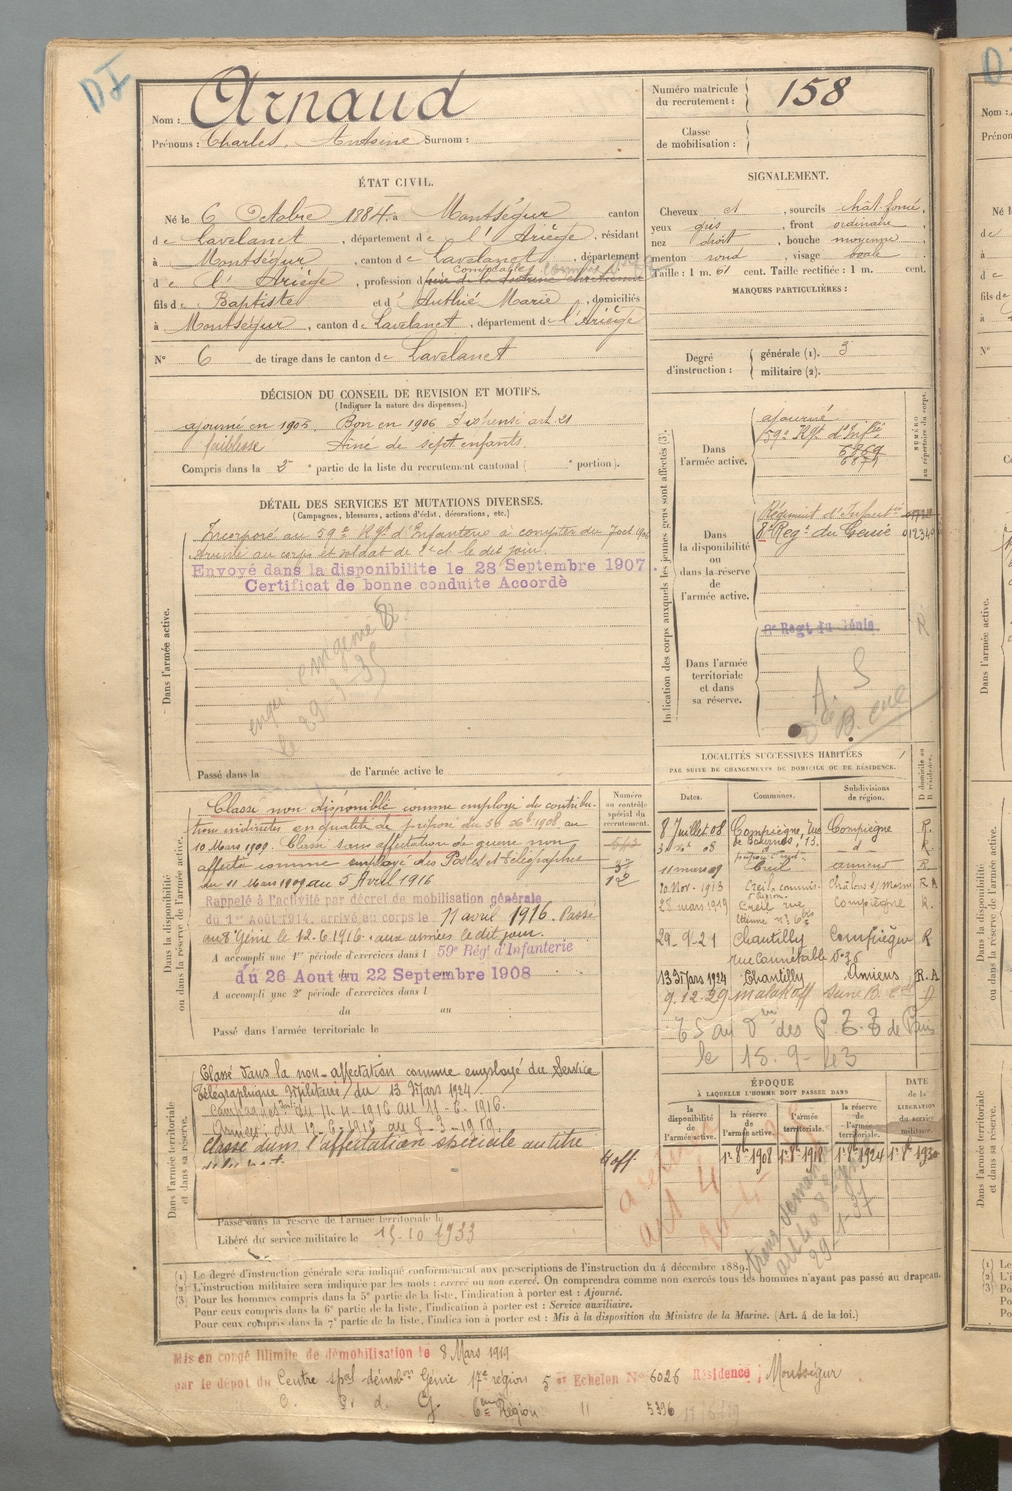 DI
Nom : Arnaud
Prénoms : Charles, Antoine Surnom :
Numéro matricule du recrutement : 158
Classe de mobilisation :
ÉTAT CIVIL.
Né le 6 Octobre 1884 à Montségur canton
de Lavelanet, département de l'Ariège, résidant
à Montségur, canton de Lavelanet, département
de l'Ariège, profession d comptable
fils de Baptiste et d' Authié Marie, domiciliés
à Montségur, canton de Lavelanet, département de l'Ariège
N° 6 de tirage dans le canton de Lavelanet
SIGNALEMENT.
Cheveux et, sourcils chât. foncé,
yeux gris, front ordinaire,
nez droit, bouche moyenne
menton rond, visage ovale
Taille : 1 m. 61 cent. Taille rectifiée : 1 m. cent.
MARQUES PARTICULIÈRES :
Degré d'instruction : générale (1). 3
militaire (2).
DÉCISION DU CONSEIL DE REVISION ET MOTIFS.
(Indiquer la nature des dispenses.)
ajourné en 1905. Bon en 1906 Dispensé art. 21
faiblesse Aîné de sept enfants
Compris dans la 2e partie de la liste du recrutement cantonal ( e portion).
DÉTAIL DES SERVICES ET MUTATIONS DIVERSES.
(Campagnes, blessures, actions d'éclat, décorations, etc.)
Dans l'armée active.
Incorporé au 59e Rgt d'Infanterie à compter du 7 oct. 1906
Arrivé au corps et soldat de 2e cl. le dit jour.
Envoyé dans la disponibilite le 28 Septembre 1907
Certificat de bonne conduite Accordé
Passé dans la de l'armée active le
Indication des corps auxquels les jeunes gens sont affectés (3).
NUMÉRO au répertoire du corps.
Dans l'armée active.
ajourné
59e Rgt d'Infie
6869
6879
Dans la disponibilité ou dans la réserve de l'armée active.
Régiment d'Infantie
8e Regt du Génie 01234
Dans l'armée territoriale et dans sa réserve.
8e Regt du Génie
R
LOCALITÉS SUCCESSIVES HABITÉES
PAR SUITE DE CHANGEMENTS DE DOMICILE OU DE RÉSIDENCE.
Dates. Communes. Subdivisions de région. D domicile ou R résidence.
8 Juillet 08. Compiègne, rue Compiègne R.
13.
11 mars 09 Creil amiens R
10 Nov. 1913 Creil Châlons s/ Marne R A
28 mars 1919 Creil rue Compiègne R.
29-9-21 Chantilly Compiègne R
rue Connétable n° 36
13 Mars 1924 Chantilly Amiens R. A
9.12.29 Malakoff Seine B.
des P.T.T. de Paris
le 15-9-43
Dans la disponibilité ou dans la réserve de l'armée active.
Numéro au contrôle spécial du recrutement.
Classé non disponible comme employé des contribu-
tions indirectes en qualité de préposé du 30 Xbre 1908 au
10 Mars 1909. Classé sans affectation de guerre non
affecté comme employé des Postes et Télégraphes
du 11 Mars 1909 au 5 Avril 1916
Rappelé à l'activité par décret de mobilisation générale
du 1er Août 1914, arrivé au corps le 11 avril 1916. Passé
au 8e Génie le 12.6.1916. aux armées le dit jour.
A accompli une 1re période d'exercices dans l 59e Rég. d'Infanterie
du 26 Aout au 22 Septembre 1908
A accompli une 2e période d'exercices dans l
du au
Passé dans l'armée territoriale le
Dans l'armée territoriale et dans sa réserve.
Classé dans la non-affectation comme employé du Service
Télégraphique Militaire, du 13 Mars 1924.
du 11-4-1916 au 11-6-1916.
du 12-6-1916 au 8-3-1919.
Classé dans l'affectation spéciale au titre
Passé dans la réserve de l'armée territoriale le
Libéré du service militaire le 15-10 1933
ÉPOQUE
À LAQUELLE L'HOMME DOIT PASSER DANS
DATE de la LIBÉRATION du service militaire.
la disponibilité de l'armée active. la réserve de l'armée active. l'armée territoriale. la réserve de l'armée territoriale.
1er 8bre 1908 1er 8bre 1918 1er 8bre 1924 1er 8bre 1930
(1) Le degré d'instruction générale sera indiqué conformément aux prescriptions de l'instruction du 4 décembre 1889.
(2) L'instruction militaire sera indiquée par les mots : exercé ou non exercé. On comprendra comme non exercés tous les hommes n'ayant pas passé au drapeau.
(3) Pour les hommes compris dans la 5e partie de la liste, l'indication à porter est : Ajourné.
Pour ceux compris dans la 6e partie de la liste, l'indication à porter est : Service auxiliaire.
Pour ceux compris dans la 7e partie de la liste, l'indication à porter est : Mis à la disposition du Ministre de la Marine. (Art. 4 de la loi.)
Mis en congé illimité de démobilisation le 8 Mars 1919
par le dépot du Centre spal démobon Génie 17e région 5e Echelon N° 6026 Résidence ; Montségur
C. G. d. G. 6eme Région 11 5396